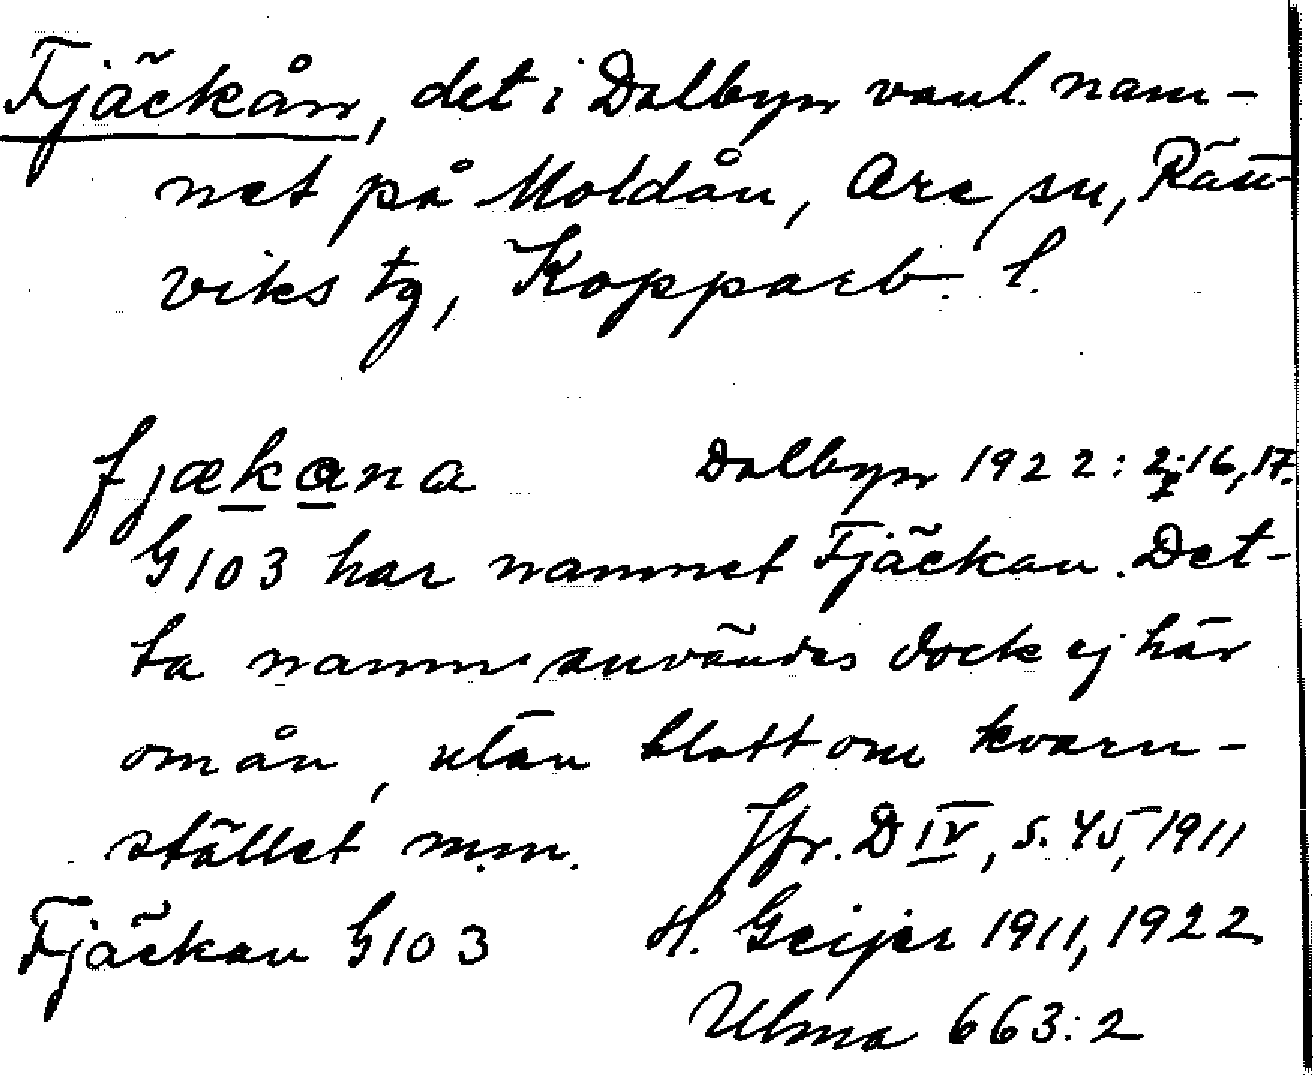 Fjäckån, det i Dalbyn vanl. nam-
net på Moldån, Ore sn, Rätt-
viks tg, Kopparb. l.
fjækana Dalbyn 1922: 2:16, 17.
G103 har namnet Fjäckan. Det-
ta namn användes dock ej här
om ån, utan blott om kvarn-
stället m.m. Jfr. D IV, s. 45, 1911
Fjäckan G103 H. Geijer 1911, 1922
Ulma 663:2